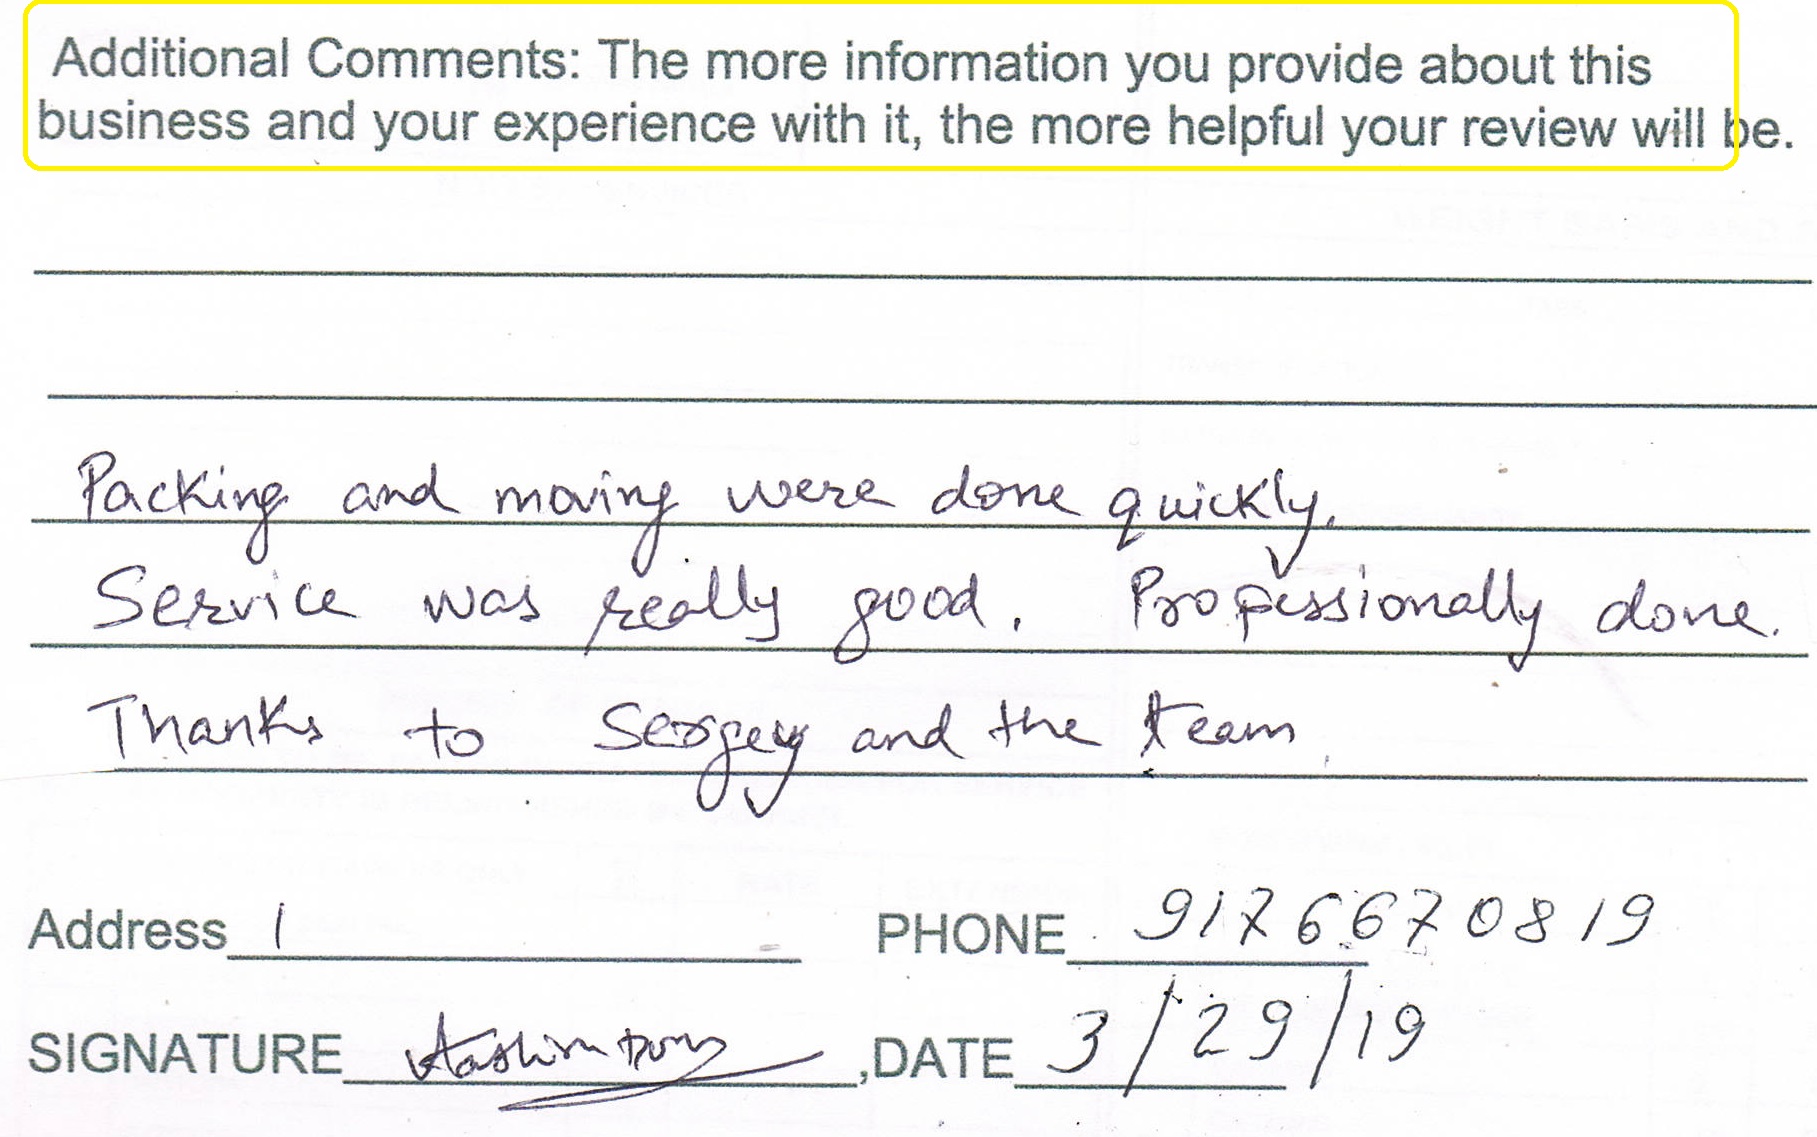 Additional Comments: The more information you provide about this
business and your experience with it, the more helpful your review will be.
Packing and moving were done quickly.
Service was really good. Professionally done.
Thanks to Sergey and the team
Address 1 PHONE 9176670819
SIGNATURE ,DATE 3/29/19